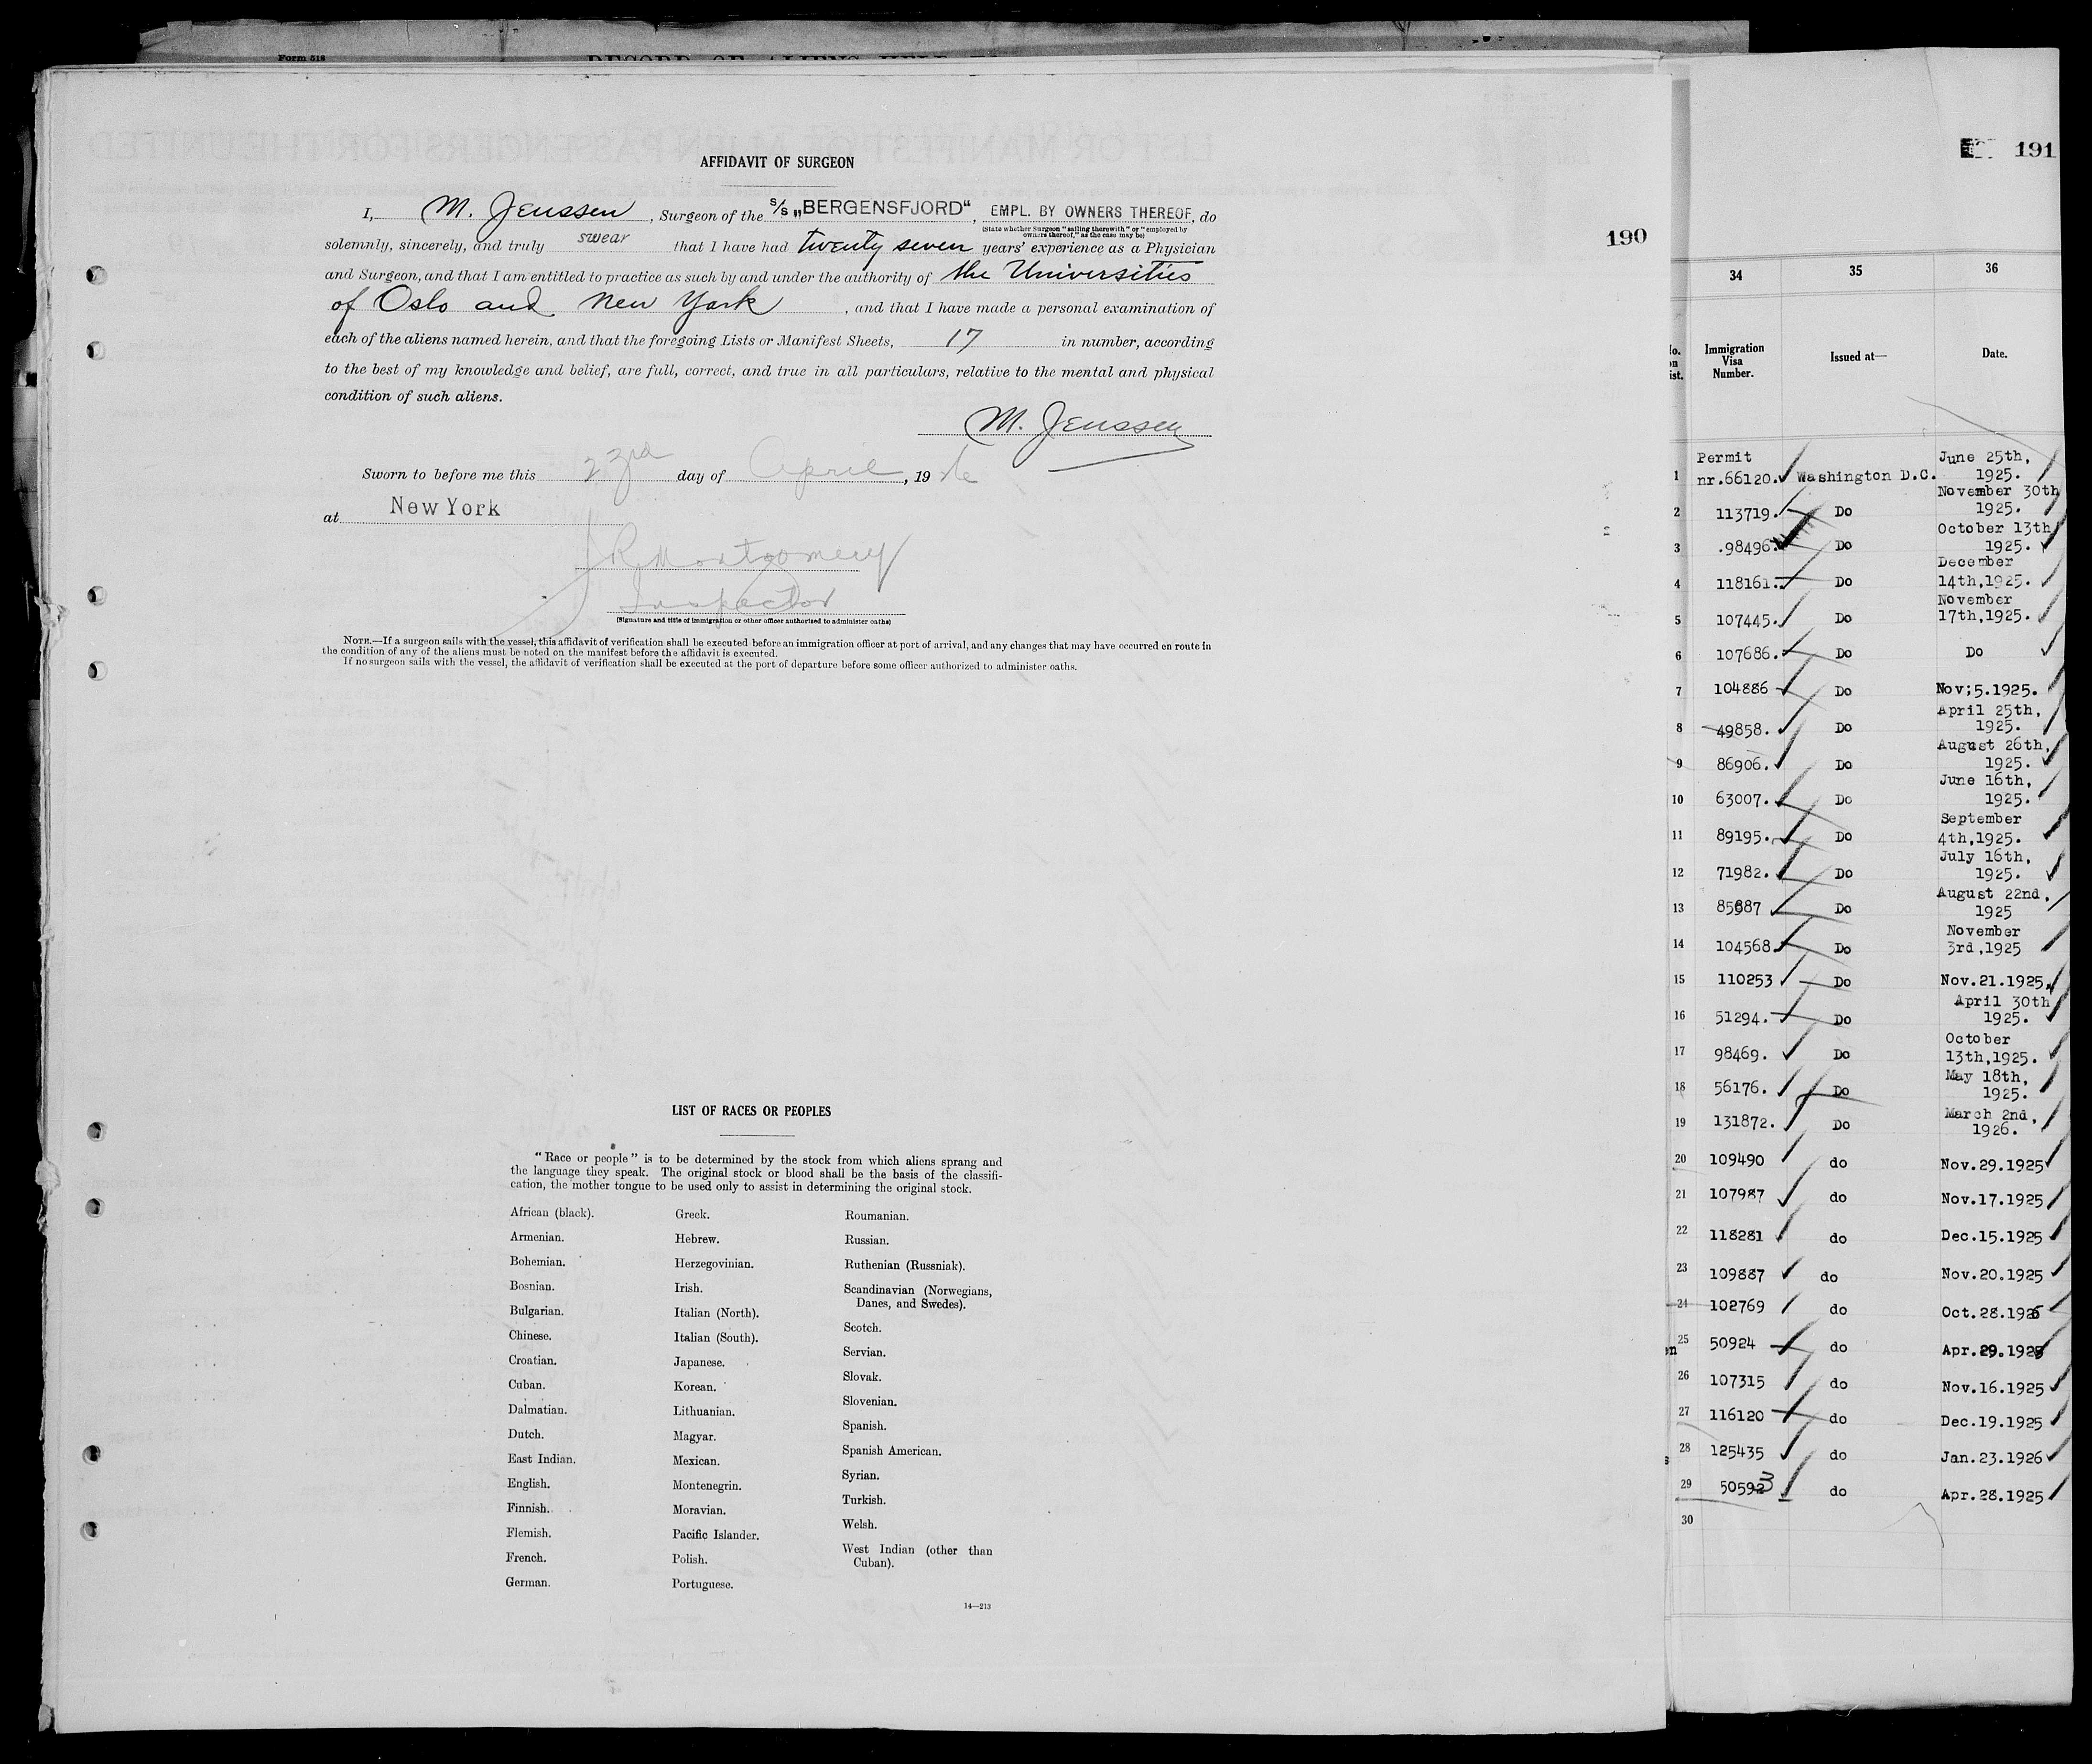 Form 518
RECORD OF ALIENS HELD
AFFIDAVIT OF SURGEON
I, M. Jenssen, Surgeon of the S/S „BERGENSFJORD“, EMPL. BY OWNERS THEREOF, do
(State whether Surgeon "sailing therewith" or "employed by
owners thereof," as the case may be)
solemnly, sincerely, and truly swear that I have had twenty seven years' experience as a Physician
and Surgeon, and that I am entitled to practice as such by and under the authority of the Universities
of Oslo and New York, and that I have made a personal examination of
each of the aliens named herein, and that the foregoing Lists or Manifest Sheets, 17 in number, according
to the best of my knowledge and belief, are full, correct, and true in all particulars, relative to the mental and physical
condition of such aliens.
M. Jenssen
Sworn to before me this 23rd day of April, 1926
at New York
J R Montgomery
Inspector
(Signature and title of immigration or other officer authorized to administer oaths)
NOTE.—If a surgeon sails with the vessel, this affidavit of verification shall be executed before an immigration officer at port of arrival, and any changes that may have occurred en route in
the condition of any of the aliens must be noted on the manifest before the affidavit is executed.
If no surgeon sails with the vessel, the affidavit of verification shall be executed at the port of departure before some officer authorized to administer oaths.
190
LIST OF RACES OR PEOPLES
"Race or people" is to be determined by the stock from which aliens sprang and
the language they speak. The original stock or blood shall be the basis of the classifi-
cation, the mother tongue to be used only to assist in determining the original stock.
African (black).
Armenian.
Bohemian.
Bosnian.
Bulgarian.
Chinese.
Croatian.
Cuban.
Dalmatian.
Dutch.
East Indian.
English.
Finnish.
Flemish.
French.
German.
Greek.
Hebrew.
Herzegovinian.
Irish.
Italian (North).
Italian (South).
Japanese.
Korean.
Lithuanian.
Magyar.
Mexican.
Montenegrin.
Moravian.
Pacific Islander.
Polish.
Portuguese.
Roumanian.
Russian.
Ruthenian (Russniak).
Scandinavian (Norwegians,
Danes, and Swedes).
Scotch.
Servian.
Slovak.
Slovenian.
Spanish.
Spanish American.
Syrian.
Turkish.
Welsh.
West Indian (other than
Cuban).
14—213
191
34 35 36
Immigration
Visa
Number.
Issued at—
Date.
Permit June 25th,
1 nr.66120. Washington D.C. 1925.
November 30th
2 113719. Do 1925.
October 13th
3 .98496. Do 1925.
December
4 118161. Do 14th,1925.
November
5 107445. Do 17th,1925.
6 107686. Do Do
7 104886 Do Nov;5.1925.
April 25th,
8 49858. Do 1925.
August 26th,
9 86906. Do 1925.
June 16th,
10 63007. Do 1925.
September
11 89195. Do 4th,1925.
July 16th,
12 71982. Do 1925.
August 22nd,
13 85887 Do 1925
November
14 104568. Do 3rd,1925
15 110253 Do Nov.21.1925.
April 30th
16 51294. Do 1925.
October
17 98469. Do 13th,1925.
May 18th,
18 56176. Do 1925.
March 2nd,
19 131872. Do 1926.
20 109490 do Nov.29.1925
21 107987 do Nov.17.1925
22 118281 do Dec.15.1925
23 109887 do Nov.20.1925
24 102769 do Oct.28.1925
25 50924 do Apr.29.1925
26 107315 do Nov.16.1925
27 116120 do Dec.19.1925
28 125435 do Jan.23.1926
29 50593 do Apr.28.1925
30